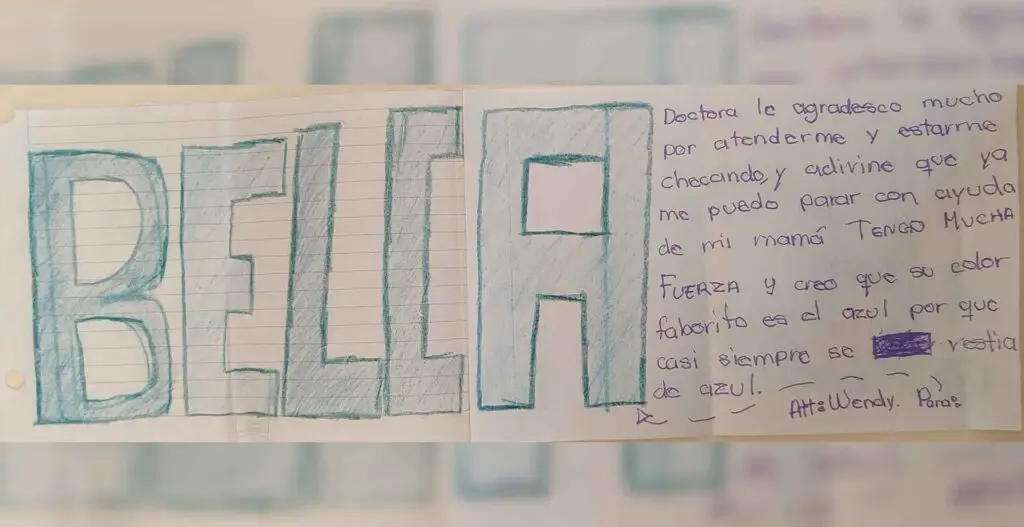 BELLA
Doctora le agradesco mucho
por atenderme y estarme
checando, y adivine que ya
me puedo parar con ayuda
de mis mamá TENGO MUCHA
FUERZA y creo que su color
faborito es el azul por que
casi siempre se vestia
de azul.
Att: Wendy. Para: